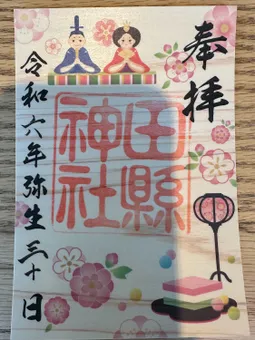 奉拝
田縣神社
令和六年弥生三十日